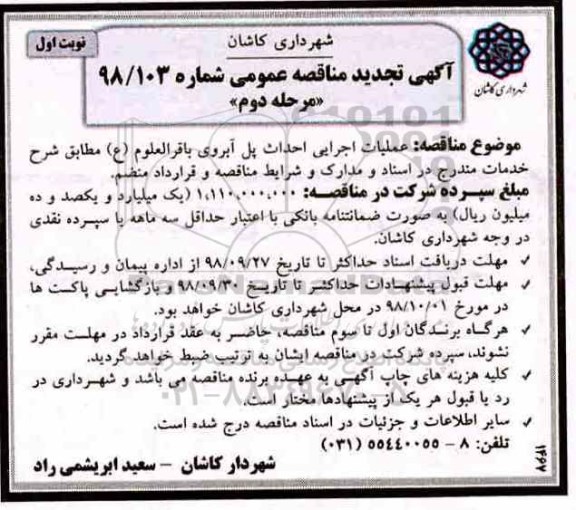 شهرداری کاشان
نوبت اول
آگهی تجدید مناقصه عمومی شماره ۹۸/۱۰۳
«مرحله دوم»
شهرداری کاشان
موضوع مناقصه: عملیات اجرایی احداث پل آبروی باقرالعلوم (ع) مطابق شرح
خدمات مندرج در اسناد و مدارک و شرایط مناقصه و قرارداد منضم.
مبلغ سپرده شرکت در مناقصه: ۱,۱۱۰,۰۰۰,۰۰۰ (یک میلیارد و یکصد و ده
میلیون ریال) به صورت ضمانتنامه بانکی با اعتبار حداقل سه ماهه یا سپرده نقدی
در وجه شهرداری کاشان.
✓ مهلت دریافت اسناد حداکثر تا تاریخ ۹۸/۰۹/۲۷ از اداره پیمان و رسیدگی،
✓ مهلت قبول پیشنهادات حداکثر تا تاریخ ۹۸/۰۹/۳۰ و بازگشایی پاکت ها
در مورخ ۹۸/۱۰/۰۱ در محل شهرداری کاشان خواهد بود.
✓ هرگاه برندگان اول تا سوم مناقصه، حاضر به عقد قرارداد در مهلت مقرر
نشوند، سپرده شرکت در مناقصه ایشان به ترتیب ضبط خواهد گردید.
✓ کلیه هزینه های چاپ آگهی به عهده برنده مناقصه می باشد و شهرداری در
رد یا قبول هر یک از پیشنهادها مختار است.
✓ سایر اطلاعات و جزئیات در اسناد مناقصه درج شده است.
تلفن: ۸ - ۵۵۴۴۰۰۵۵ (۰۳۱)
شهردار کاشان - سعید ابریشمی راد
۱۴۶۷